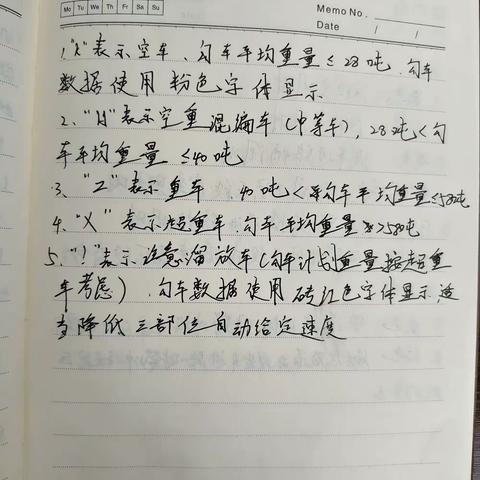 Mo Tu We Th Fr Sa Su
Memo No.
Date / /
1."K"表示空车、勾车平均重量≤28吨.勾车
数据使用粉色字体显示
2、"H"表示空重混编车(中等车),28吨<勾
车平均重量≤40吨
3、"Z"表示重车 40吨<平均勾车平均重量≤58吨
4、"X"表示超重车,勾车平均重量>58吨
5、"!"表示注意溜放车(勾车计划重量按超重
车考虑).勾车数据使用砖红色字体显示,适
当降低三部位自动给定速度